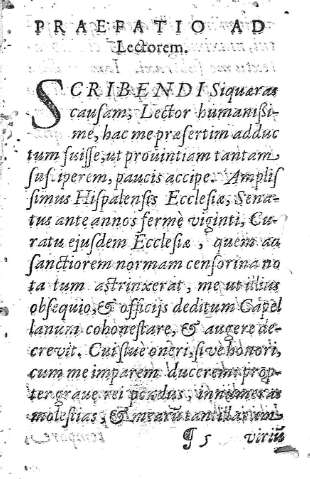 PRAEFATIO AD
Lectorem.
SCRIBENDI Si quæras
causam, Lector humanissi-
me, hac me præsertim adduc
tum fuisse, ut prouintiam tantam
susciperem, paucis accipe. Amplis
simus Hispalensis Ecclesiæ, Sena-
tus ante annos fermè viginti, Cu-
ratu ejusdem Ecclesiæ, quem ad
sanctiorem normam censorina no
ta tum astrinxerat, me ut illius
obsequio, & officijs deditum Capel
lanum cohonestare, & augere de-
crevit. Cui sive oneri, sive honori,
cum me imparem ducerem prop-
ter grave rei pondus, innumeras
molestias, & mearū tantillarum
¶ 5 viriū